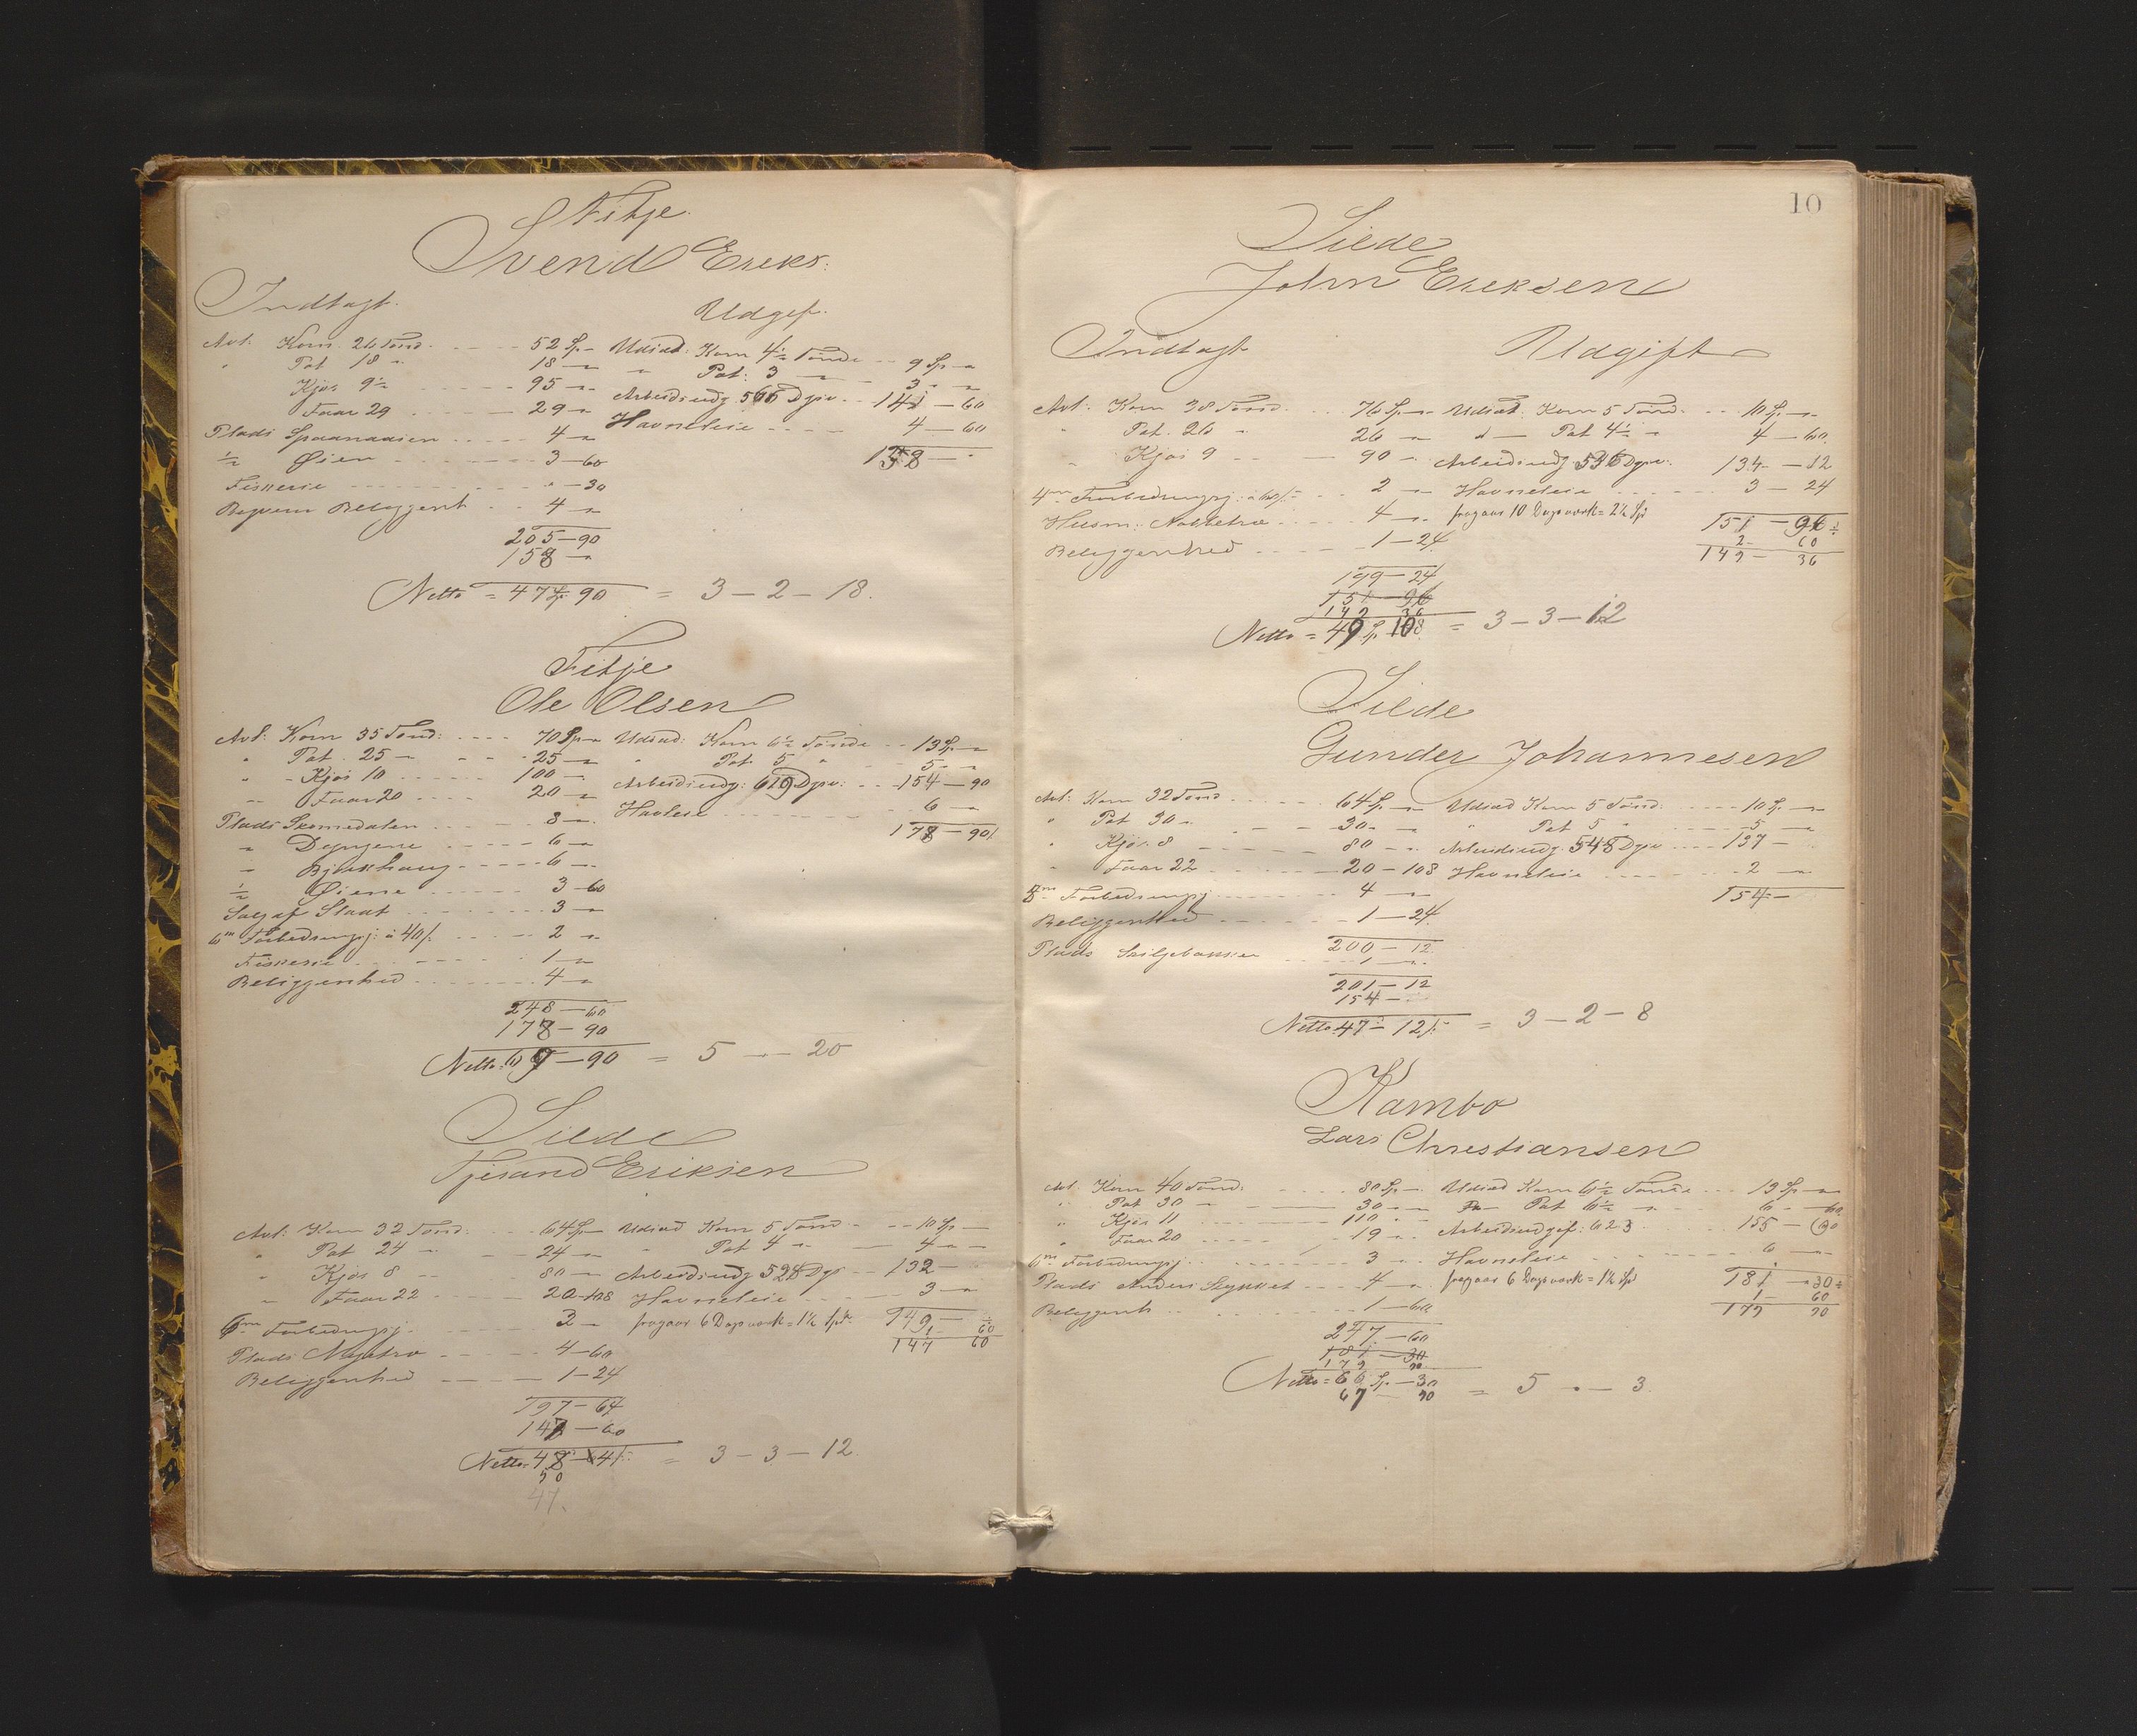 Fitje.
Svend Eriks:
Indtægt.
Udgif.
Avl: Korn 26 Tønd. 52 Sp Udsæd: Korn 4½ Tønde 9 Sp "
" Pot 18 " 18 — " " Pot: 3 — 3 " "
Kjør 9½ 95 " Arbeidsudg 566 Dgsv. 141 — 60
Faar 29 29 " Havneleie 4 — 60
Plads Spaanaasen 4 " 158 — "
½ Øien 3 — 60
Fiskerie " — 30
Beqvem Beliggenh 4 "
205 — 90
158 — "
Netto = 47 Sp 90 = 3 — 2 — 18.
Fitje
Ole Olsen
Avl: Korn 35 Tønd: 70 Sp " Udsæd: Korn 6½ Tønde 13 Sp "
" Pot. 25 — 25 — " Pot. 5 " 5 " "
" Kjør 10 100 — Arbeidsudg: 619 Dgsv: 154 — 90
— Faar 20 20 " Havleie 6 "
Plads Skomedalen 8 — 178 — 90
" Dyngene 6 "
— Bjørkhaug 6 —
½ Øiene 3 — 60
Salg af Slaat 3 "
6 m Forbedringsj: à 40 /. 2 "
Fiskerie 1 "
Beliggenhed 4 "
248 — 60
178 — 90
Netto: 69 — 90 = 5 — " — 20
Silde
Tjerand Eriksen
Avl: Korn 32 Tønd. 64 Sp Udsæd Korn 5 Tønd 10 Sp —
" Pot 24 " 24 " " Pot 4 " 4 " —
" Kjør 8 80 — Arbeidsudg 528 Dgs 132 —
" Faar 22 20 — 108 Havneleie 3 "
6 m Forbedringsj. 3 — fragaar 6 Dagsverk = 1½ Spd 149 —
1 — 60
Plads Nygetræ 4 — 60 147 60
Beliggenhed 1 — 24
197 — 64
147 — 60
Netto: 48 — 64 = 3 — 3 — 12
50
47.
10
Silde
John Eriksen
Indtægt Udgift
Avl: Korn 38 Tønd. 76 Sp " Udsæd: Korn 5 Tønd. 10 Sp "
" Pot. 26 " 26 " " — Pot 4½ " 4 — 60
" Kjør 9 90 " Arbeidsudg 536 Dgsv: 134 — 12
4 m Forbedringsj: 2 " Havneleie 3 — 24
Husm: 4 " fragaar 10 Dagsverk = 2½ Spd 151 — 96
Beliggenhed 1 — 24 2 — 60
149 — 36
199 — 24
151 — 96
149 36
Netto = 49 Sp. 108 = 3 — 3 — 12
Silde
Gunder Johannesen
Avl: Korn 32 Tønd 64 Sp " Udsæd Korn 5 Tønd: 10 Sp "
" Pot 30 " 30 " " Pot 5 " 5 —
" Kjør 8 80 — Arbeidsudg. 548 Dgsv 137 —
" Faar 22 20 — 108 Havneleie 2 "
8 m Forbedringsj. 4 — 154 —
Beliggenhed 1 — 24
200 — 12
Plads 1 "
201 — 12
154 —
Netto: 47 — 12 /. = 3 — 2 — 8
Kambo
Lars Christiansen
Avl. Korn 40 Tønd: 80 Sp — Udsæd Korn 6½ Tønde 13 Sp "
" Pot 30 " 30 " Pot 6½ " 6 — 60
" Kjør 11 110 " Arbeidsudgif. 623 155 — 90
" Faar 20 19 " Havneleie 6 —
6 m Forbedringsj. 3 "
Plads Anders Stykket 4 " fragaar 6 Dagsverk = 1½ Spd 181 — 30
Beliggenh 1 — 60 1 — 60
179 90
247 — 60
181 — 30
179 90
Netto = 66 Sp. — 30
67 90 = 5 " — 3